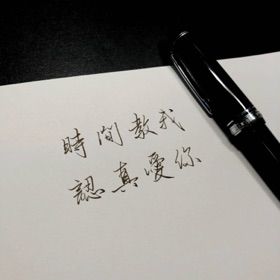 時間教我
認真愛你